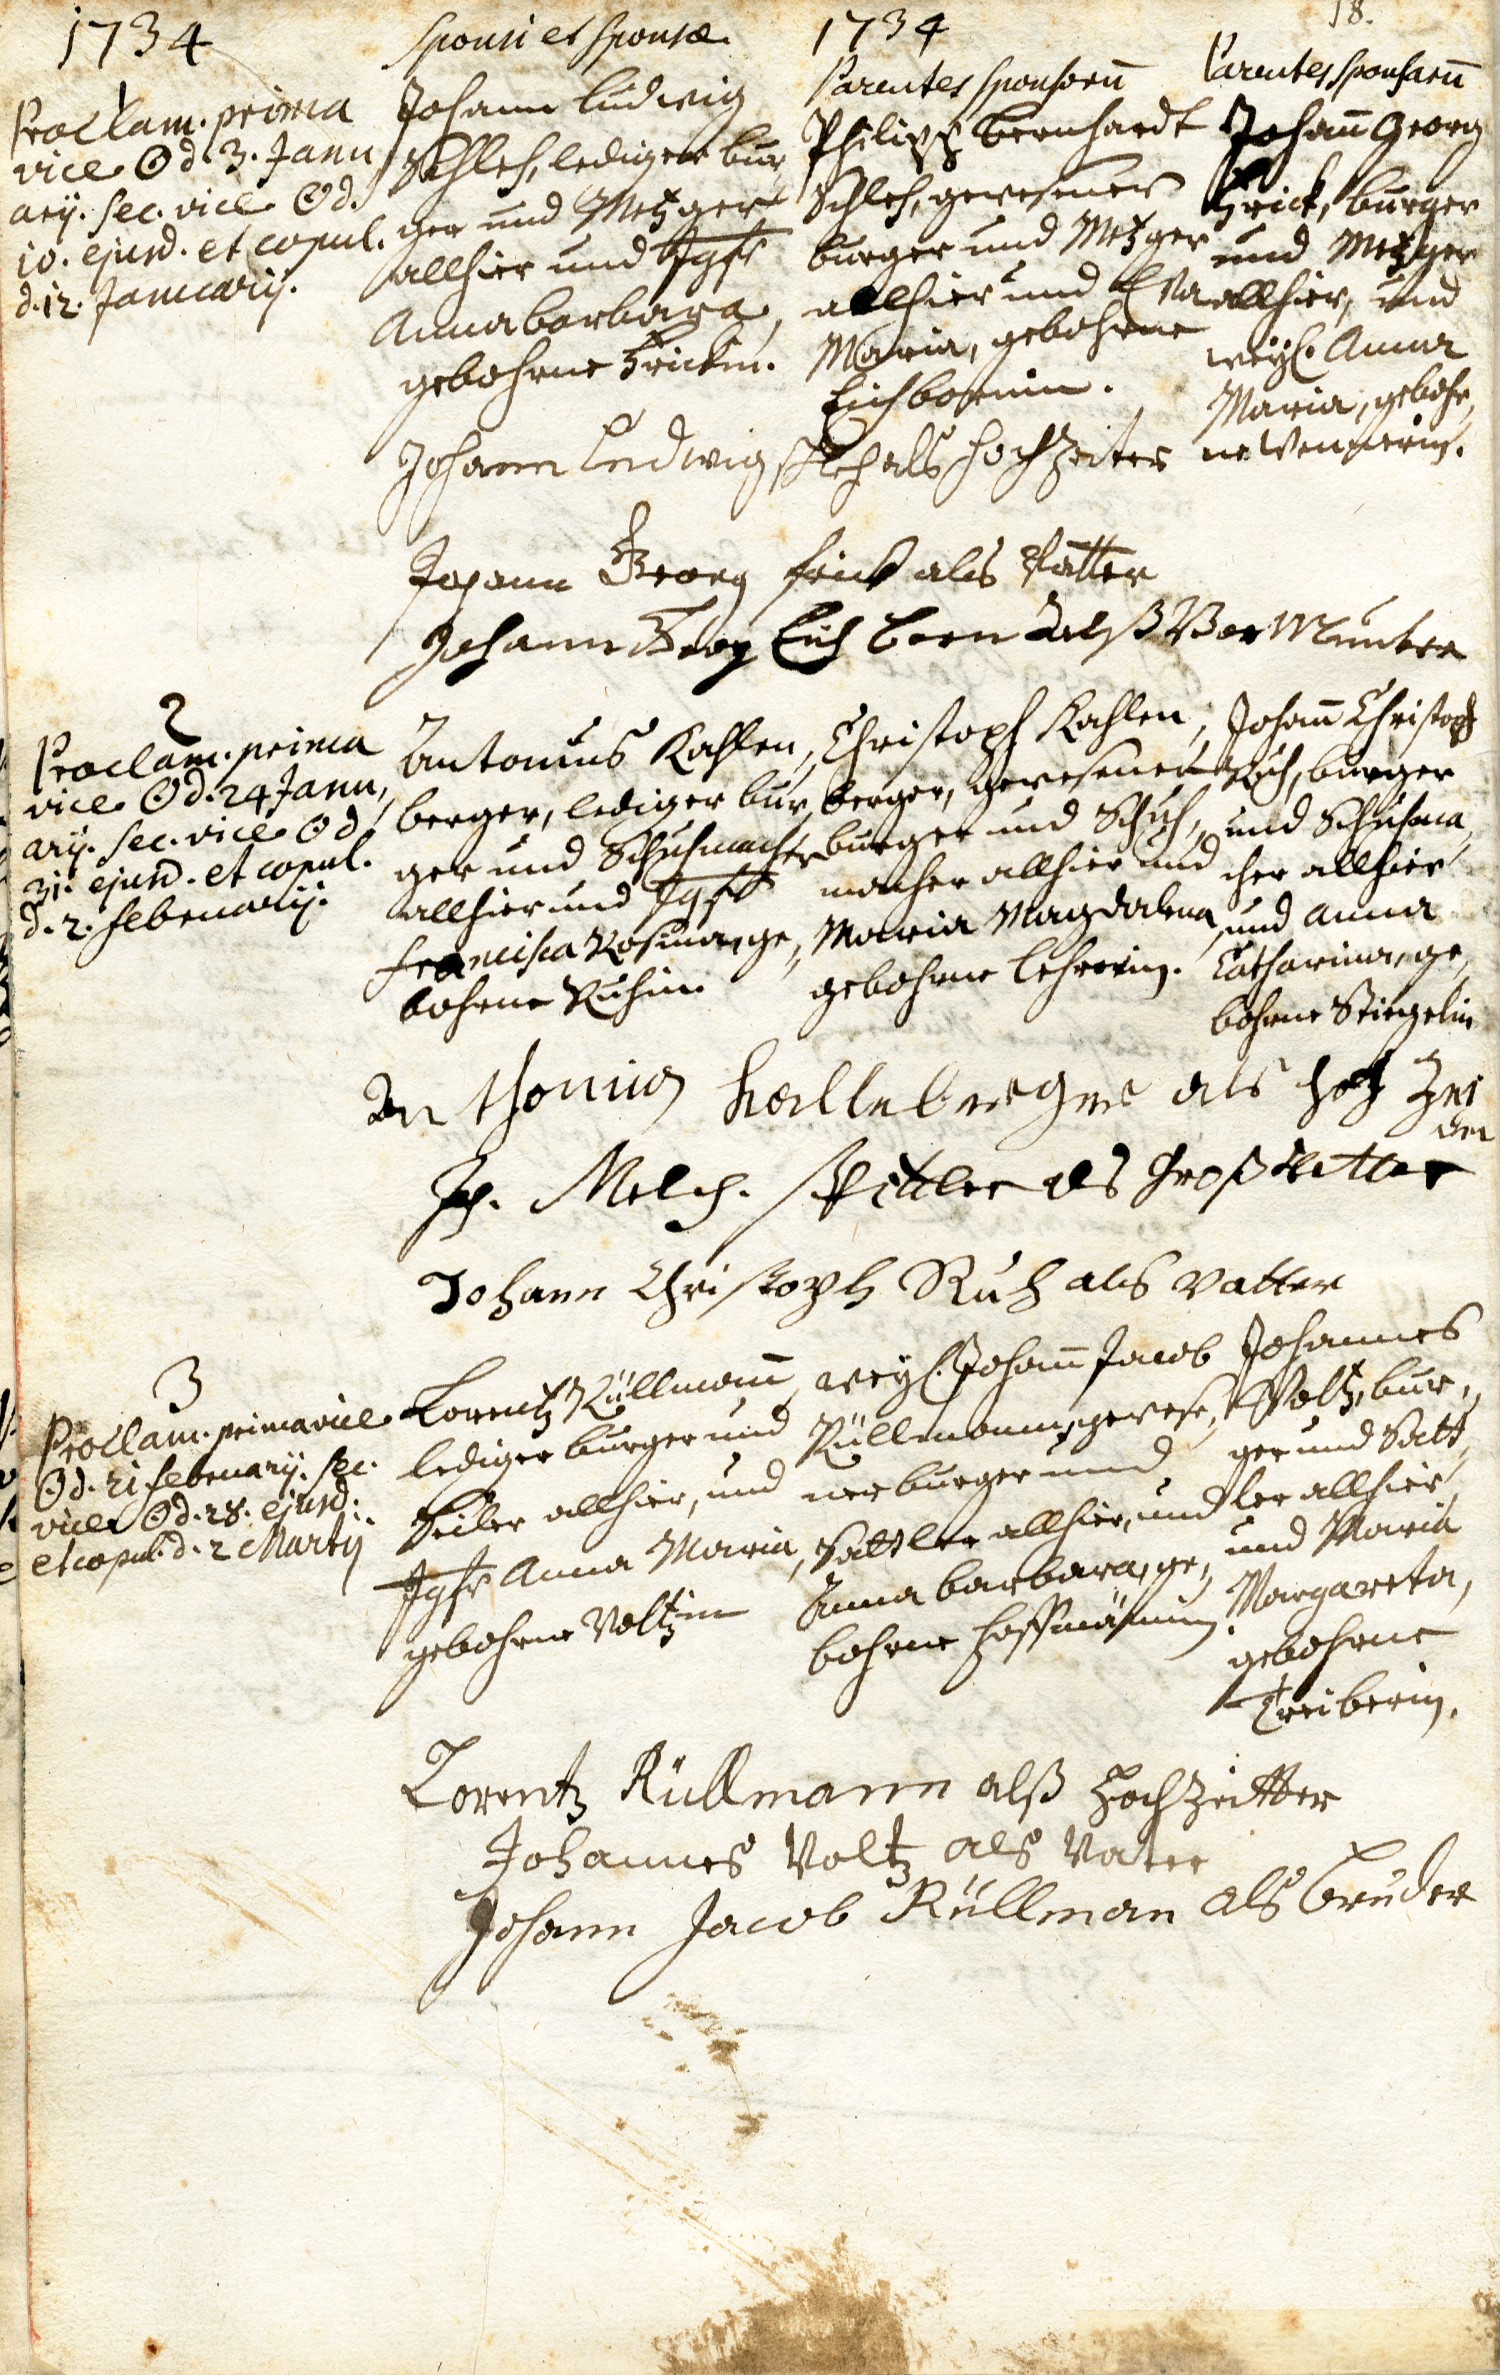 1734
Sponsi et Sponsæ
1734
18.
Parentes Sponsorū
Parentes Sponsarū
1
Proclam. prima
vice ☉ d. 3. Janu,
arij. sec. vice ☉ d.
10. ejusd. et copul.
d. 12. Januarij.
Johann Ludwig
Schleh, lediger bur,
ger und Metzger
allhier und Jgfr
Anna barbara,
gebohrne Frickin.
Philipß bernhardt
Schleh, gewesener
burger und Metzger
allhier und Eva
Maria, gebohrne
Eichbornin.
Johañ Georg
Frick, burger
und Metzger
allhier, und
weyl. Anna
Maria, geboh,
ne
Johann Ludwig Schleh als Hochzeiter
Johann Georg frick als Vatter
Johann Georg Eich born Alß Vor Munter
2
Proclam. prima
vice ☉ d. 24 Janu,
arij. sec. vice ☉ d.
31. ejusd. et copul.
d. 2. februarij.
Antonius Kahlen,
berger, lediger bur,
ger und Schuhmacher
allhier und Jgfr
francisca Rosina, ge,
bohrne Ruhin.
Christoph Kahlen,
berger, gewesener
burger und Schuh,
macher allhier und
Maria Magdalena,
gebohrne Lehrerin.
Johañ Christoph
Ruh, burger
und Schuhma,
cher allhier
und Anna
Catharina, ge,
bohrne Stiegelin
An thonius Kalleberger als hoch Zei
der
Joh. Melch. Spittler als Großvatter
Johann Christoph Ruh als Vatter
3
Proclam. prima vice
☉ d. 21 februarij. sec.
vice ☉ d. 28. ejusd.
et copul. d. 2 Martij
Lorentz Rüllmañ,
lediger burger und
Seiler allhier, und
Jgfr Anna Maria,
gebohrne Voltzin
weyl. Johañ Jacob
Rüllmanns, gewese,
ner burger und
Sattler allhier, und
Anna barbara, ge,
bohrne Hoffmänin
Johannes
Voltz, bur,
ger und Satt,
ler allhier,
und Maria
Margareta,
gebohrne
Treiberin.
Lorentz Rüllmann alß Hochzeitter
Johannes Voltz als Vater
Johann Jacob Rüllman als bruder